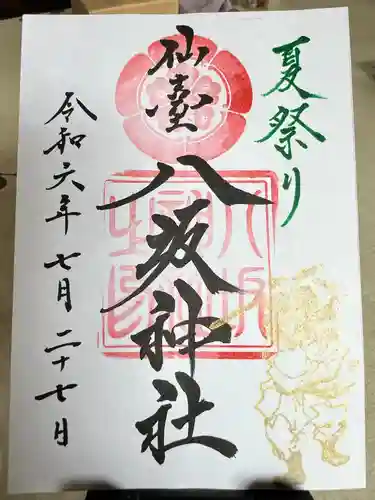 夏祭り
仙臺
八坂神社
令和六年七月二十七日